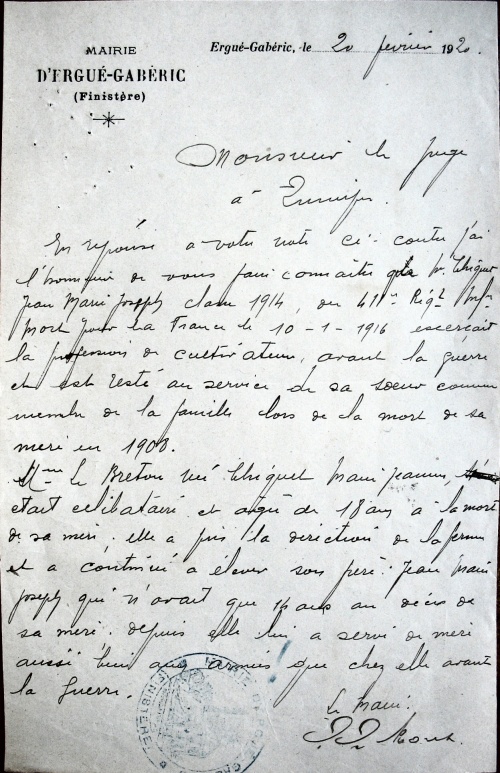 MAIRIE
D'ERGUÉ-GABÉRIC
(Finistère)
Ergué-Gabéric, le 20 février 1920.
Monsieur le Juge
à Quimper
En réponse a votre note ci-contre j'ai
l'honneur de vous faire connaître que Mr Thiquet
Jean Marie Joseph classe 1914, du 41me Régt Inf
Mort pour La France le 10-1-1916 escerçait
la profession de cultivateur, avant la guerre
et est resté au service de sa soeur comme
membre de la famille lors de la mort de sa
mère en 1908.
Mme Le Breton née Thiquet Marie Jeanne,
était célibataire et agée de 18 ans à la mort
de sa mère. elle a pris la direction de la ferme
et a continué a élever son frère. Jean Marie
Joseph qui n'avait que 14 ans au décès de
sa mère. depuis elle lui a servi de mère
aussi bien aux armées que chez elle avant
la Guerre.
Le Maire.